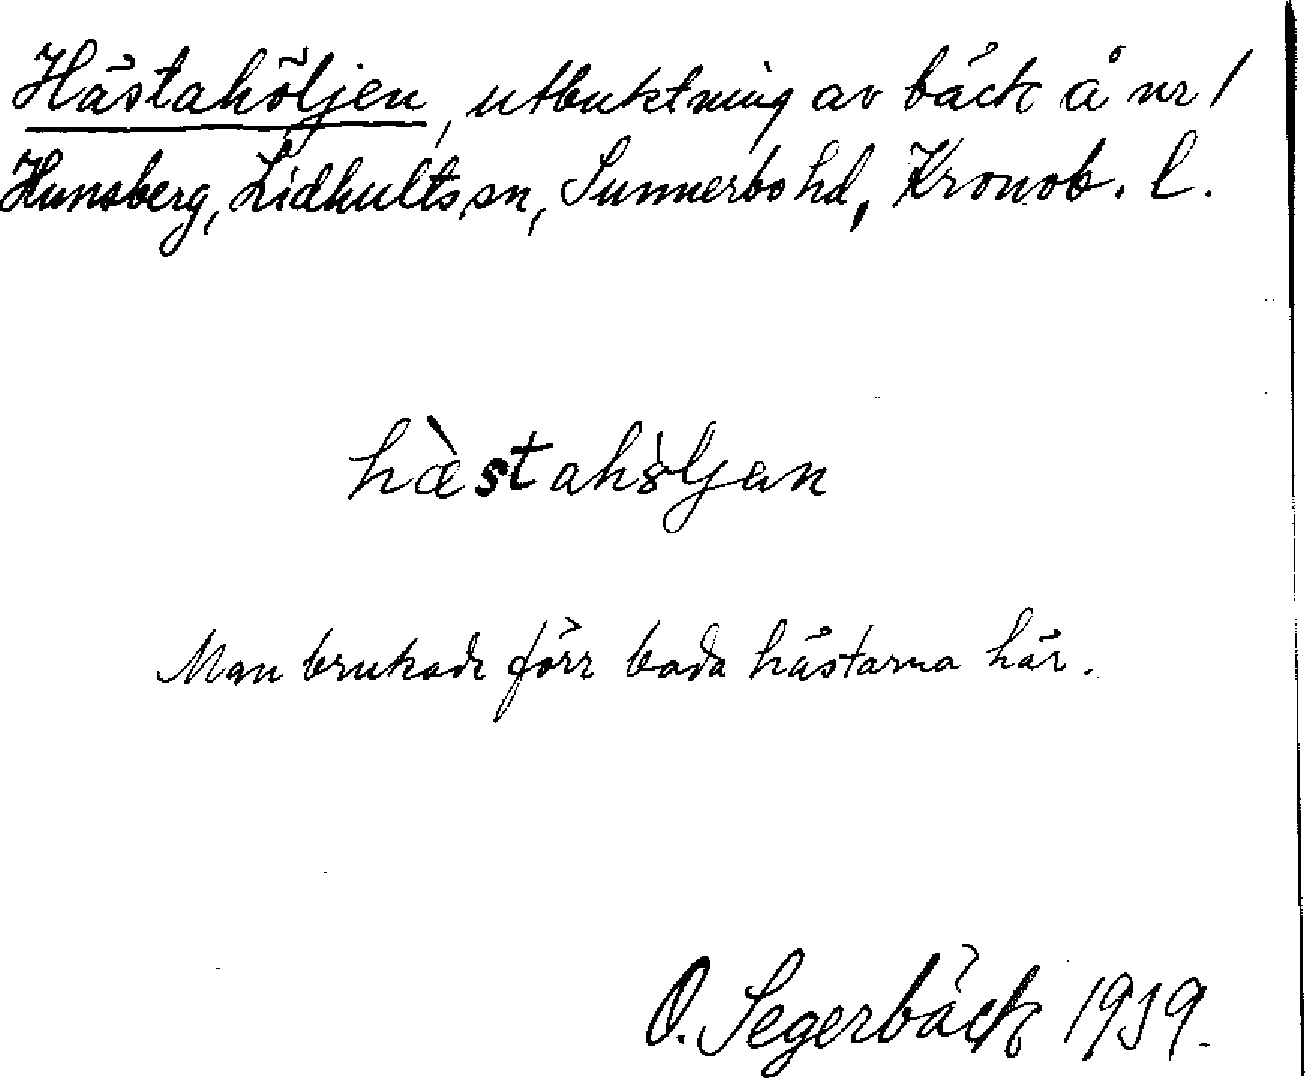 Hästahöljen, utbuktning av bäck å nr 1
Hunsberg, Lidhults sn, Sunnerbo hd, Kronob. l.
hæ̀stahöljan
Man brukade förr bada hästarna här.
O. Segerbäck 1939.